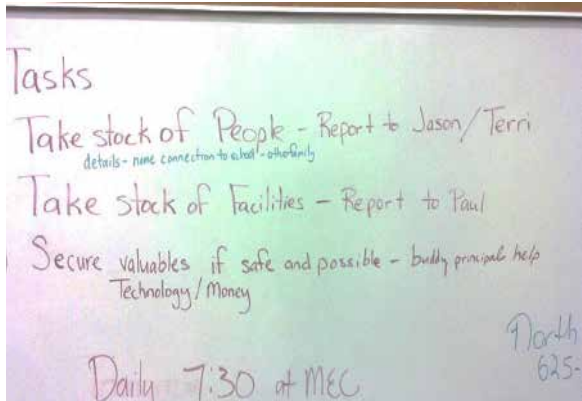 Tasks
Take stock of People - Report to Jason/Terri
details - name connection to school - other family
Take stock of Facilities - Report to Paul
Secure valuables if safe and possible - buddy principals help
Technology/Money
Daily 7:30 at MEC
North
625-